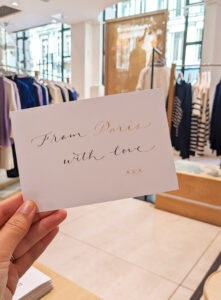 From Paris
with love
xxx